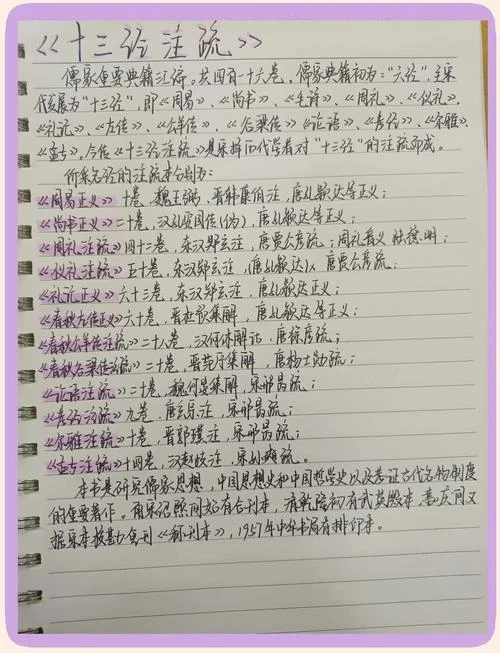 《十三经注疏》
儒家重要典籍汇编。共四百一十六卷，儒家典籍初为："六经"，至宋
代发展为"十三经"，即《周易》、《尚书》、《毛诗》、《周礼》、《仪礼》、
《礼记》、《左传》、《公羊传》、《谷梁传》《论语》、《孝经》、《尔雅》、
《孟子》，今传《十三经注疏》是采择历代学者对"十三经"的注疏而成。
所采各经的注疏本分别为：
《周易正义》十卷，魏王弼、晋韩康伯注，唐孔颖达等正义；
《尚书正义》二十卷，汉孔安国传(伪)，唐孔颖达等正义；
《周礼注疏》四十二卷，东汉郑玄注，唐贾公彦疏；周礼音义 陆德明；
《仪礼注疏》五十卷，东汉郑玄注，(唐孔颖达)× 唐贾公彦疏；
《礼记正义》六十三卷，东汉郑玄注，唐孔颖达正义；
《春秋左传正义》六十卷，晋杜预集解，唐孔颖达等正义；
《春秋公羊传注疏》二十八卷，汉何休解诂，唐徐彦疏；
《春秋谷梁传注疏》二十卷，晋范宁集解，唐杨士勋疏；
《论语注疏》二十卷，魏何晏集解，宋邢昺疏；
《孝经注疏》九卷，唐玄宗注，宋邢昺疏；
《尔雅注疏》十卷，晋郭璞注，宋邢昺疏；
《孟子注疏》十四卷，汉赵岐注，宋孙奭疏。
本书是研究儒家思想，中国思想史和中国哲学史以及考证古代名物制度
的重要著作。南宋绍熙间始有合刊本，清乾隆初有武英殿本 嘉庆间又
据宋本校勘重刊《新刊本》，1957年中华书局有排印本。